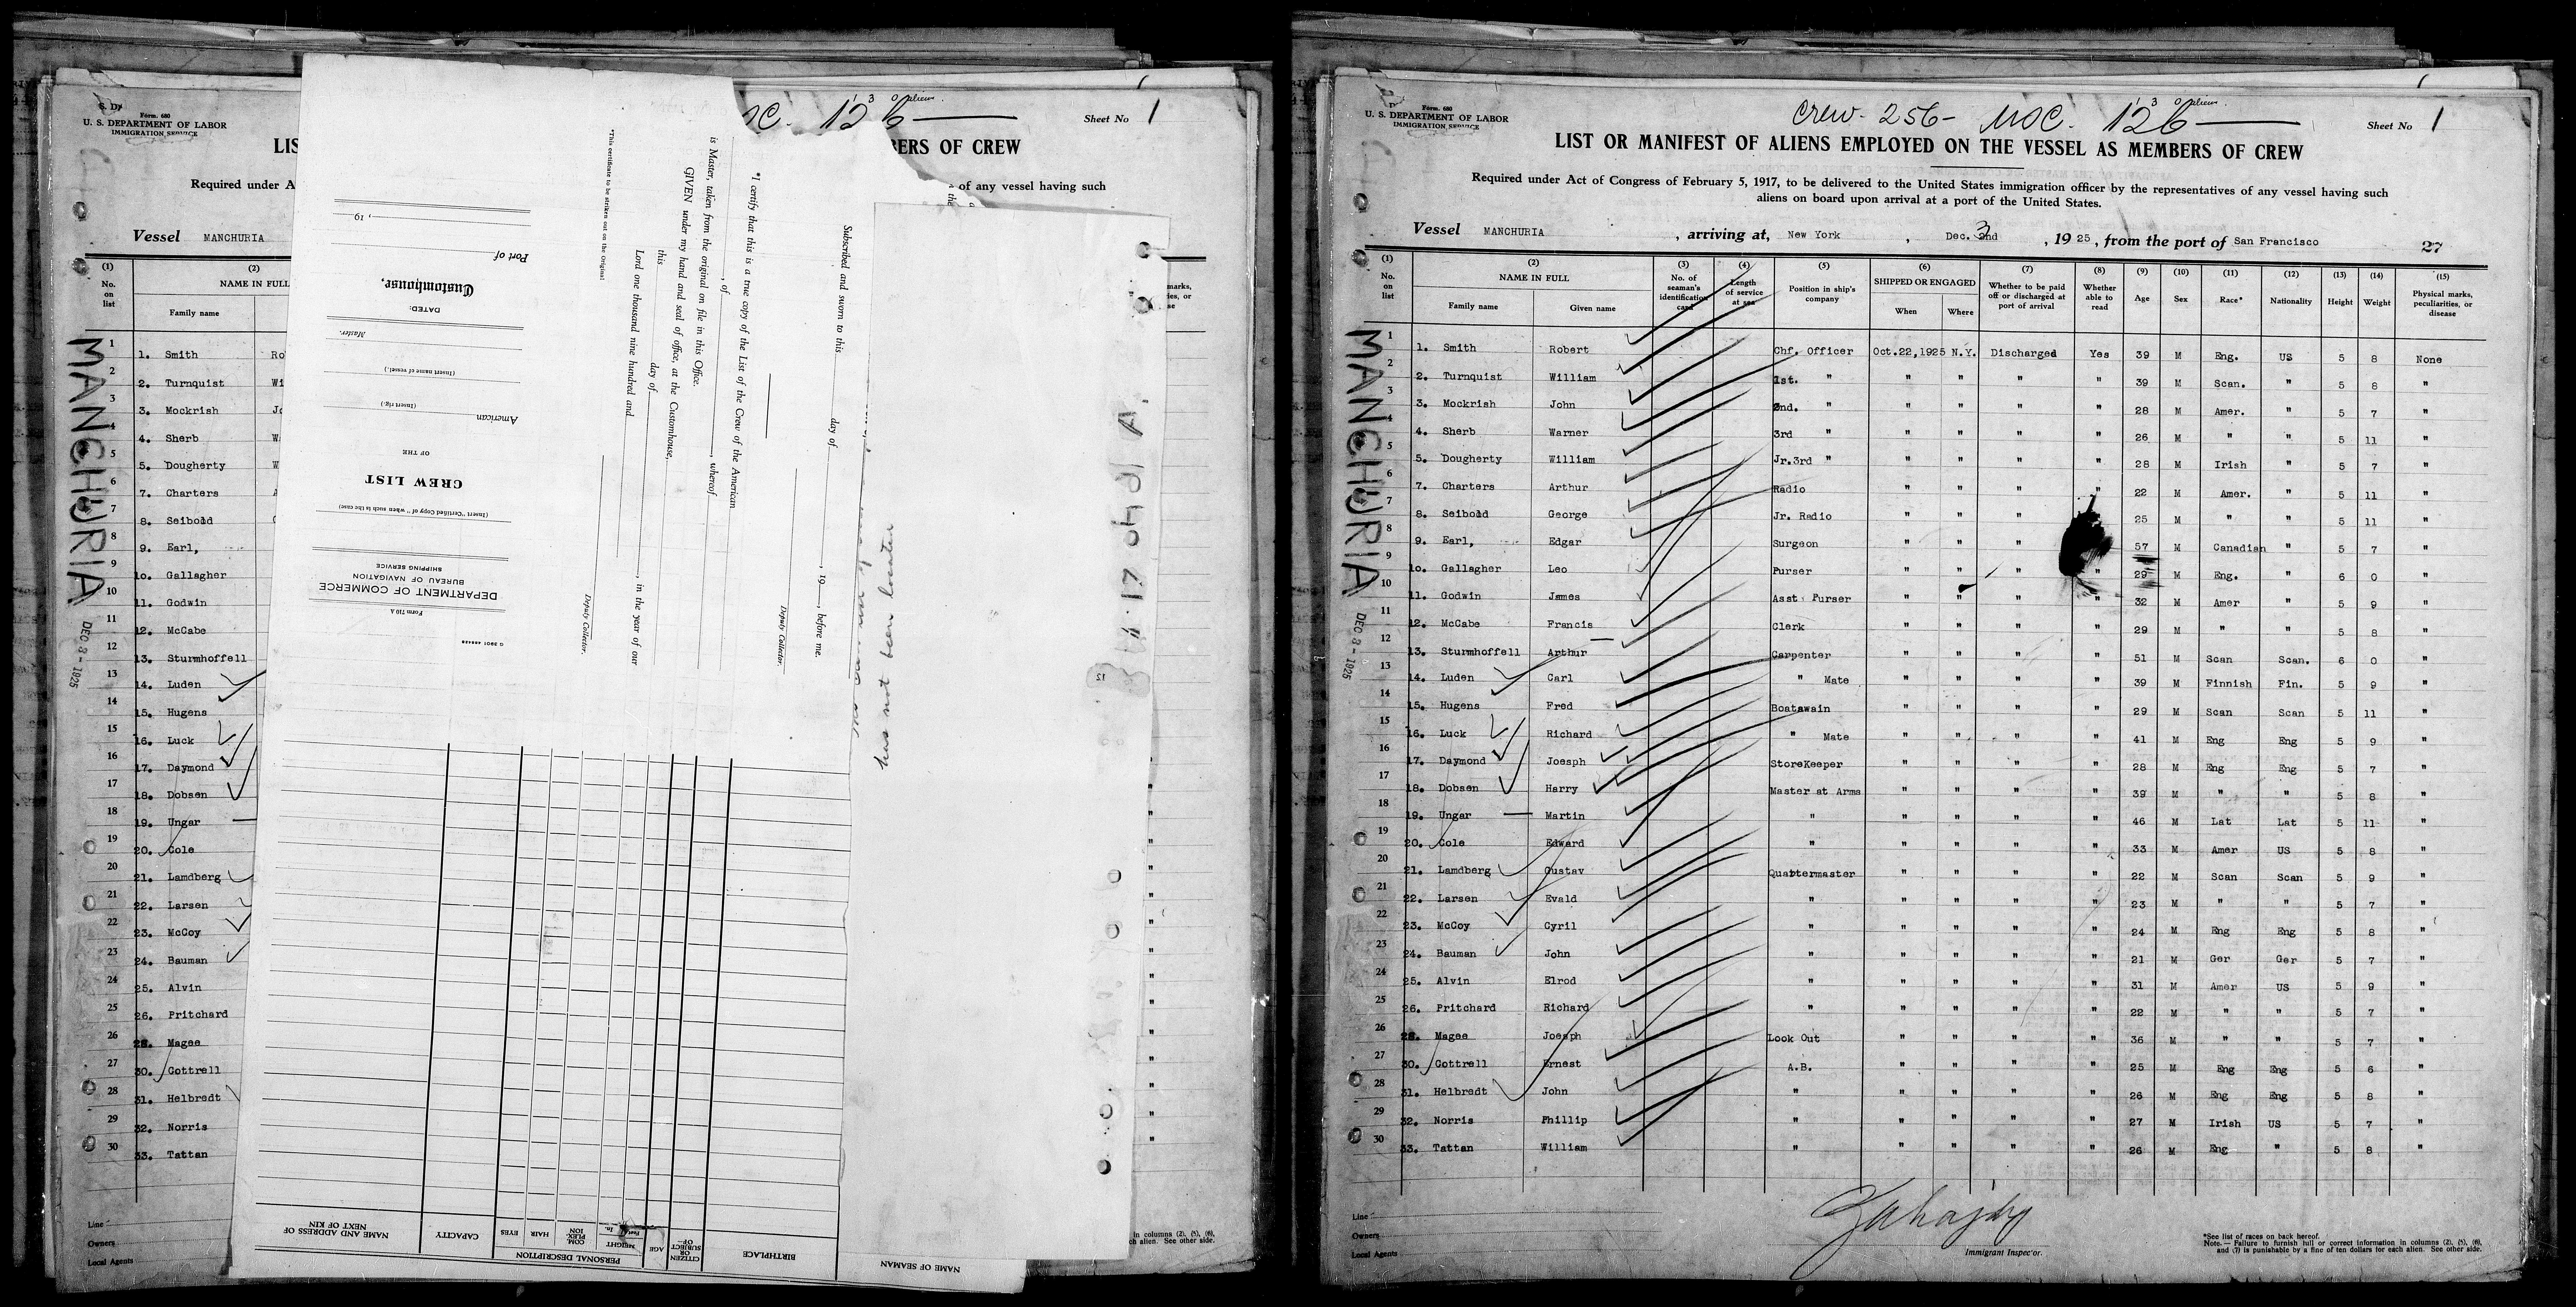 S. D.
Form. 680
U. S. DEPARTMENT OF LABOR
IMMIGRATION SERVICE
12 6
3 0 aliens
Sheet No 1
LIS
BERS OF CREW
Required under A
of any vessel having such
Vessel MANCHURIA
(1) (2)
No. on list
NAME IN FULL
Family name
MANCHURIA
DEC 3 - 1925
1 1. Smith Ro
2 2. Turnquist Wi
3 3. Mockrish Jo
4 4. Sherb W
5 5. Dougherty W
6 7. Charters A
7 8. Seibold
8 9. Earl,
9 10. Gallagher
10 11. Godwin
11 12. McCabe
12 13. Sturmhoffell
13 14. Luden
14 15. Hugens
15 16. Luck
16 17. Daymond
17 18. Dobsen
18 19. Ungar
19 20. Cole
20 21. Lamdberg
21 22. Larsen
22 23. McCoy
23 24. Bauman
24 25. Alvin
25 26. Pritchard
26 Magee
27 30. Cottrell
28 31. Helbredt
29 32. Norris
30 33. Tattan
Line
Owners
Local Agents
Form 710 A
DEPARTMENT OF COMMERCE
BUREAU OF NAVIGATION
SHIPPING SERVICE
(Insert "Certified Copy of" when such is the case)
CREW LIST
OF THE
American
(Insert rig.)
(Insert name of vessel.)
Master.
DATED:
Customhouse,
Port of
, 19
Subscribed and sworn to this day of , 19 , before me.
Deputy Collector.
*I certify that this is a true copy of the List of the Crew of the American
, of , whereof
is Master, taken from the original on file in this Office.
GIVEN under my hand and seal of office, at the Customhouse,
this day of , in the year of our
Lord one thousand nine hundred and
Deputy Collector.
*This certificate to be striken out on the Original
has not been located
NAME OF SEAMAN
BIRTHPLACE
CITIZEN OR SUBJECT OF—
PERSONAL DESCRIPTION
AGE
HEIGHT
Feet In.
COMPLEXION
HAIR
EYES
CAPACITY
NAME AND ADDRESS OF NEXT OF KIN
in columns (2), (5), (6),
ch alien. See other side.
Form. 680
U. S. DEPARTMENT OF LABOR
IMMIGRATION SERVICE
Crew - 256 - MOC. 12 6
3 0 aliens
Sheet No 1
LIST OR MANIFEST OF ALIENS EMPLOYED ON THE VESSEL AS MEMBERS OF CREW
Required under Act of Congress of February 5, 1917, to be delivered to the United States immigration officer by the representatives of any vessel having such
aliens on board upon arrival at a port of the United States.
Vessel MANCHURIA , arriving at, New York , Dec. 2nd 3 , 19 25 , from the port of San Francisco 27
(1) (2) (3) (4) (5) (6) (7) (8) (9) (10) (11) (12) (13) (14) (15)
No. on list
NAME IN FULL
Family name Given name
No. of seaman's identification card
Length of service at sea
Position in ship's company
SHIPPED OR ENGAGED
When Where
Whether to be paid off or discharged at port of arrival
Whether able to read
Age Sex Race* Nationality Height Weight
Physical marks, peculiarities, or disease
MANCHURIA
DEC 3 - 1925
1 1. Smith Robert Chf. Officer Oct.22,1925 N.Y. Discharged Yes 39 M Eng. US 5 8 None
2 2. Turnquist William 1st. " " " " " 39 M Scan. " 5 8 "
3 3. Mockrish John 2nd. " " " " " 28 M Amer. " 5 7 "
4 4. Sherb Warner 3rd " " " " " 26 M " " 5 11 "
5 5. Dougherty William Jr.3rd " " " " " 28 M Irish " 5 7 "
6 7. Charters Arthur Radio " " " " 22 M Amer. " 5 11 "
7 8. Seibold George Jr. Radio " " " 25 M " " 5 11 "
8 9. Earl, Edgar Surgeon " " " 57 M Canadian " 5 7 "
9 10. Gallagher Leo Purser " " " " 29 M Eng. " 6 0 "
10 11. Godwin James Asst Purser " " " " 32 M Amer " 5 9 "
11 12. McCabe Francis Clerk " " " " 29 M " " 5 8 "
12 13. Sturmhoffell Arthur Carpenter " " " " 51 M Scan Scan. 6 0 "
13 14. Luden Carl " Mate " " " " 39 M Finnish Fin. 5 9 "
14 15. Hugens Fred Boatswain " " " " 29 M Scan Scan 5 11 "
15 16. Luck Richard " Mate " " " " 41 M Eng Eng 5 9 "
16 17. Daymond Joesph StoreKeeper " " " " 28 M Eng Eng 5 7 "
17 18. Dobsen Harry Master at Arms " " " " 39 M " " 5 8 "
18 19. Ungar Martin " " " " " 46 M Lat Lat 5 11 "
19 20. Cole Edward " " " " " 33 M Amer US 5 8 "
20 21. Lamdberg Gustav Quartermaster " " " " 22 M Scan Scan 5 9 "
21 22. Larsen Evald " " " " " 23 M " " 5 7 "
22 23. McCoy Cyril " " " " " 24 M Eng Eng 5 8 "
23 24. Bauman John " " " " " 21 M Ger Ger 5 7 "
24 25. Alvin Elrod " " " " " 31 M Amer US 5 9 "
25 26. Pritchard Richard " " " " " 22 M " " 5 7 "
26 Magee Joesph Look Out " " " " 36 M " " 5 7 "
27 30. Cottrell Ernest A.B. " " " " 25 M Eng Eng 5 6 "
28 31. Helbredt John " " " " " 26 M Eng Eng 5 8 "
29 32. Norris Phillip " " " " " 27 M Irish US 5 7 "
30 33. Tattan William " " " " " 26 M Eng " 5 8 "
Line
Owners
Local Agents
Immigrant Inspector.
*See list of races on back hereof.
Note.—Failure to furnish full or correct information in columns (2), (5), (6),
and (7) is punishable by a fine of ten dollars for each alien. See other side.